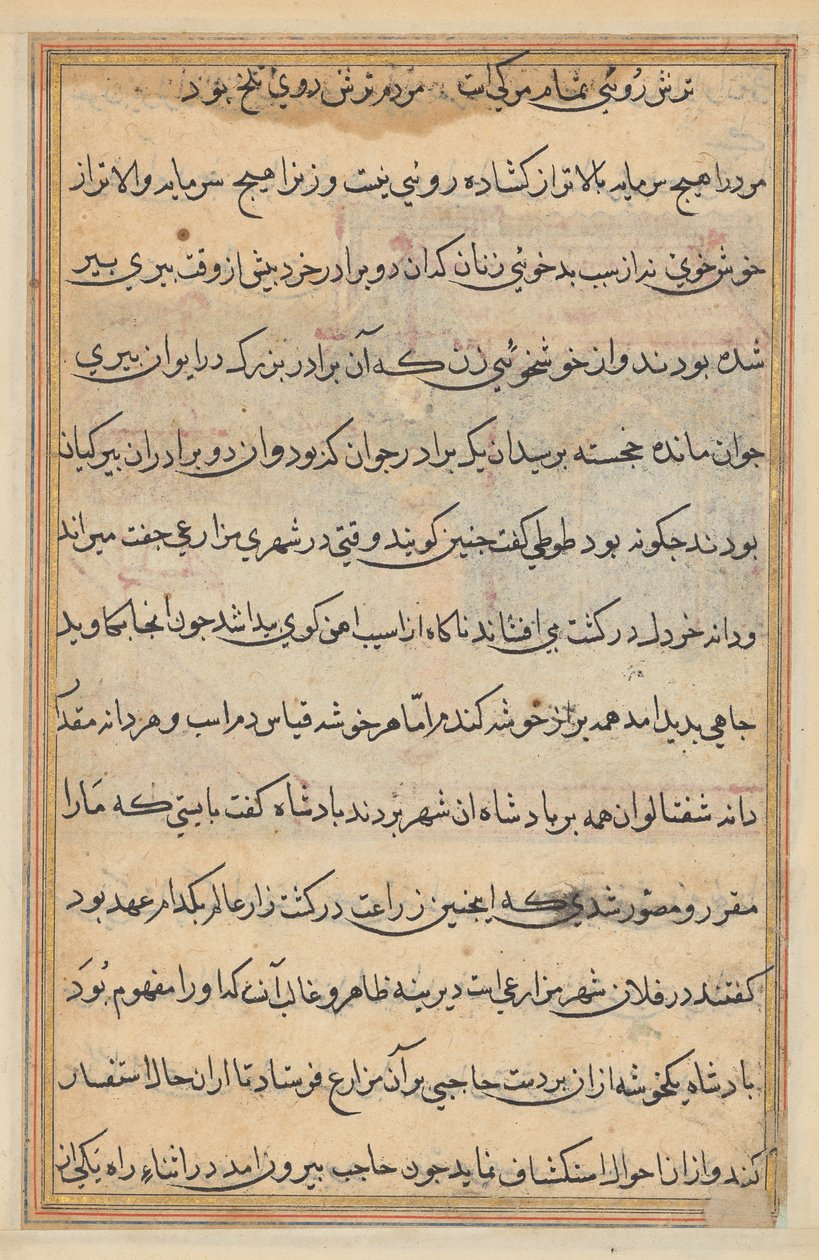 ترش روئی تمام مرکی است مردم ترش روی تلخ بود
مرد را هیچ سرمایه بالاتر از کشاده روئی نیست و زنرا هیچ سرمایه والاتر از
خوش خوی نه از سبب بدخوئی زنان کدان دو برادر خرد بیش از وقت بیری بیر
شده بودند و از خوشخوئی زن که آن برادر بزرک در ایوان بیری
جوان مانده خجسته برسید ان یک برادر جوان کذ بود و ان دو برادران بیر کیان
بودند جکونه بود طوطی کفت جنین کویند وقتی در شهری مزارعی جفت میراند
و دانه خردل در کشت می افشاند ناکاه از اسیب اهن کوی بیدا شد جون انجا بکاوید
جاهی بدید امد همه بر از خوشه کندم اما هر خوشه قیاس دم اسب و هر دانه مقدا
دانه شفتالو ان همه بر بادشاه ان شهر بردند بادشاه کفت بایستی که مارا
مقرر و مصور شدی که اینجنین زراعت در کشت زار عالم بکدام عهد بود
کفتند در فلان شهر مزارعی است دیرینه ظاهر و غالب آنست که او را مفهوم بود
بادشاه یکخوشه ازان بردست حاجبی بر آن مزارع فرستاد تا ازان حال استفسار
کند و ازان احوال استکشاف نماید جون حاجب بیرون امد در اثناء راه یکی از